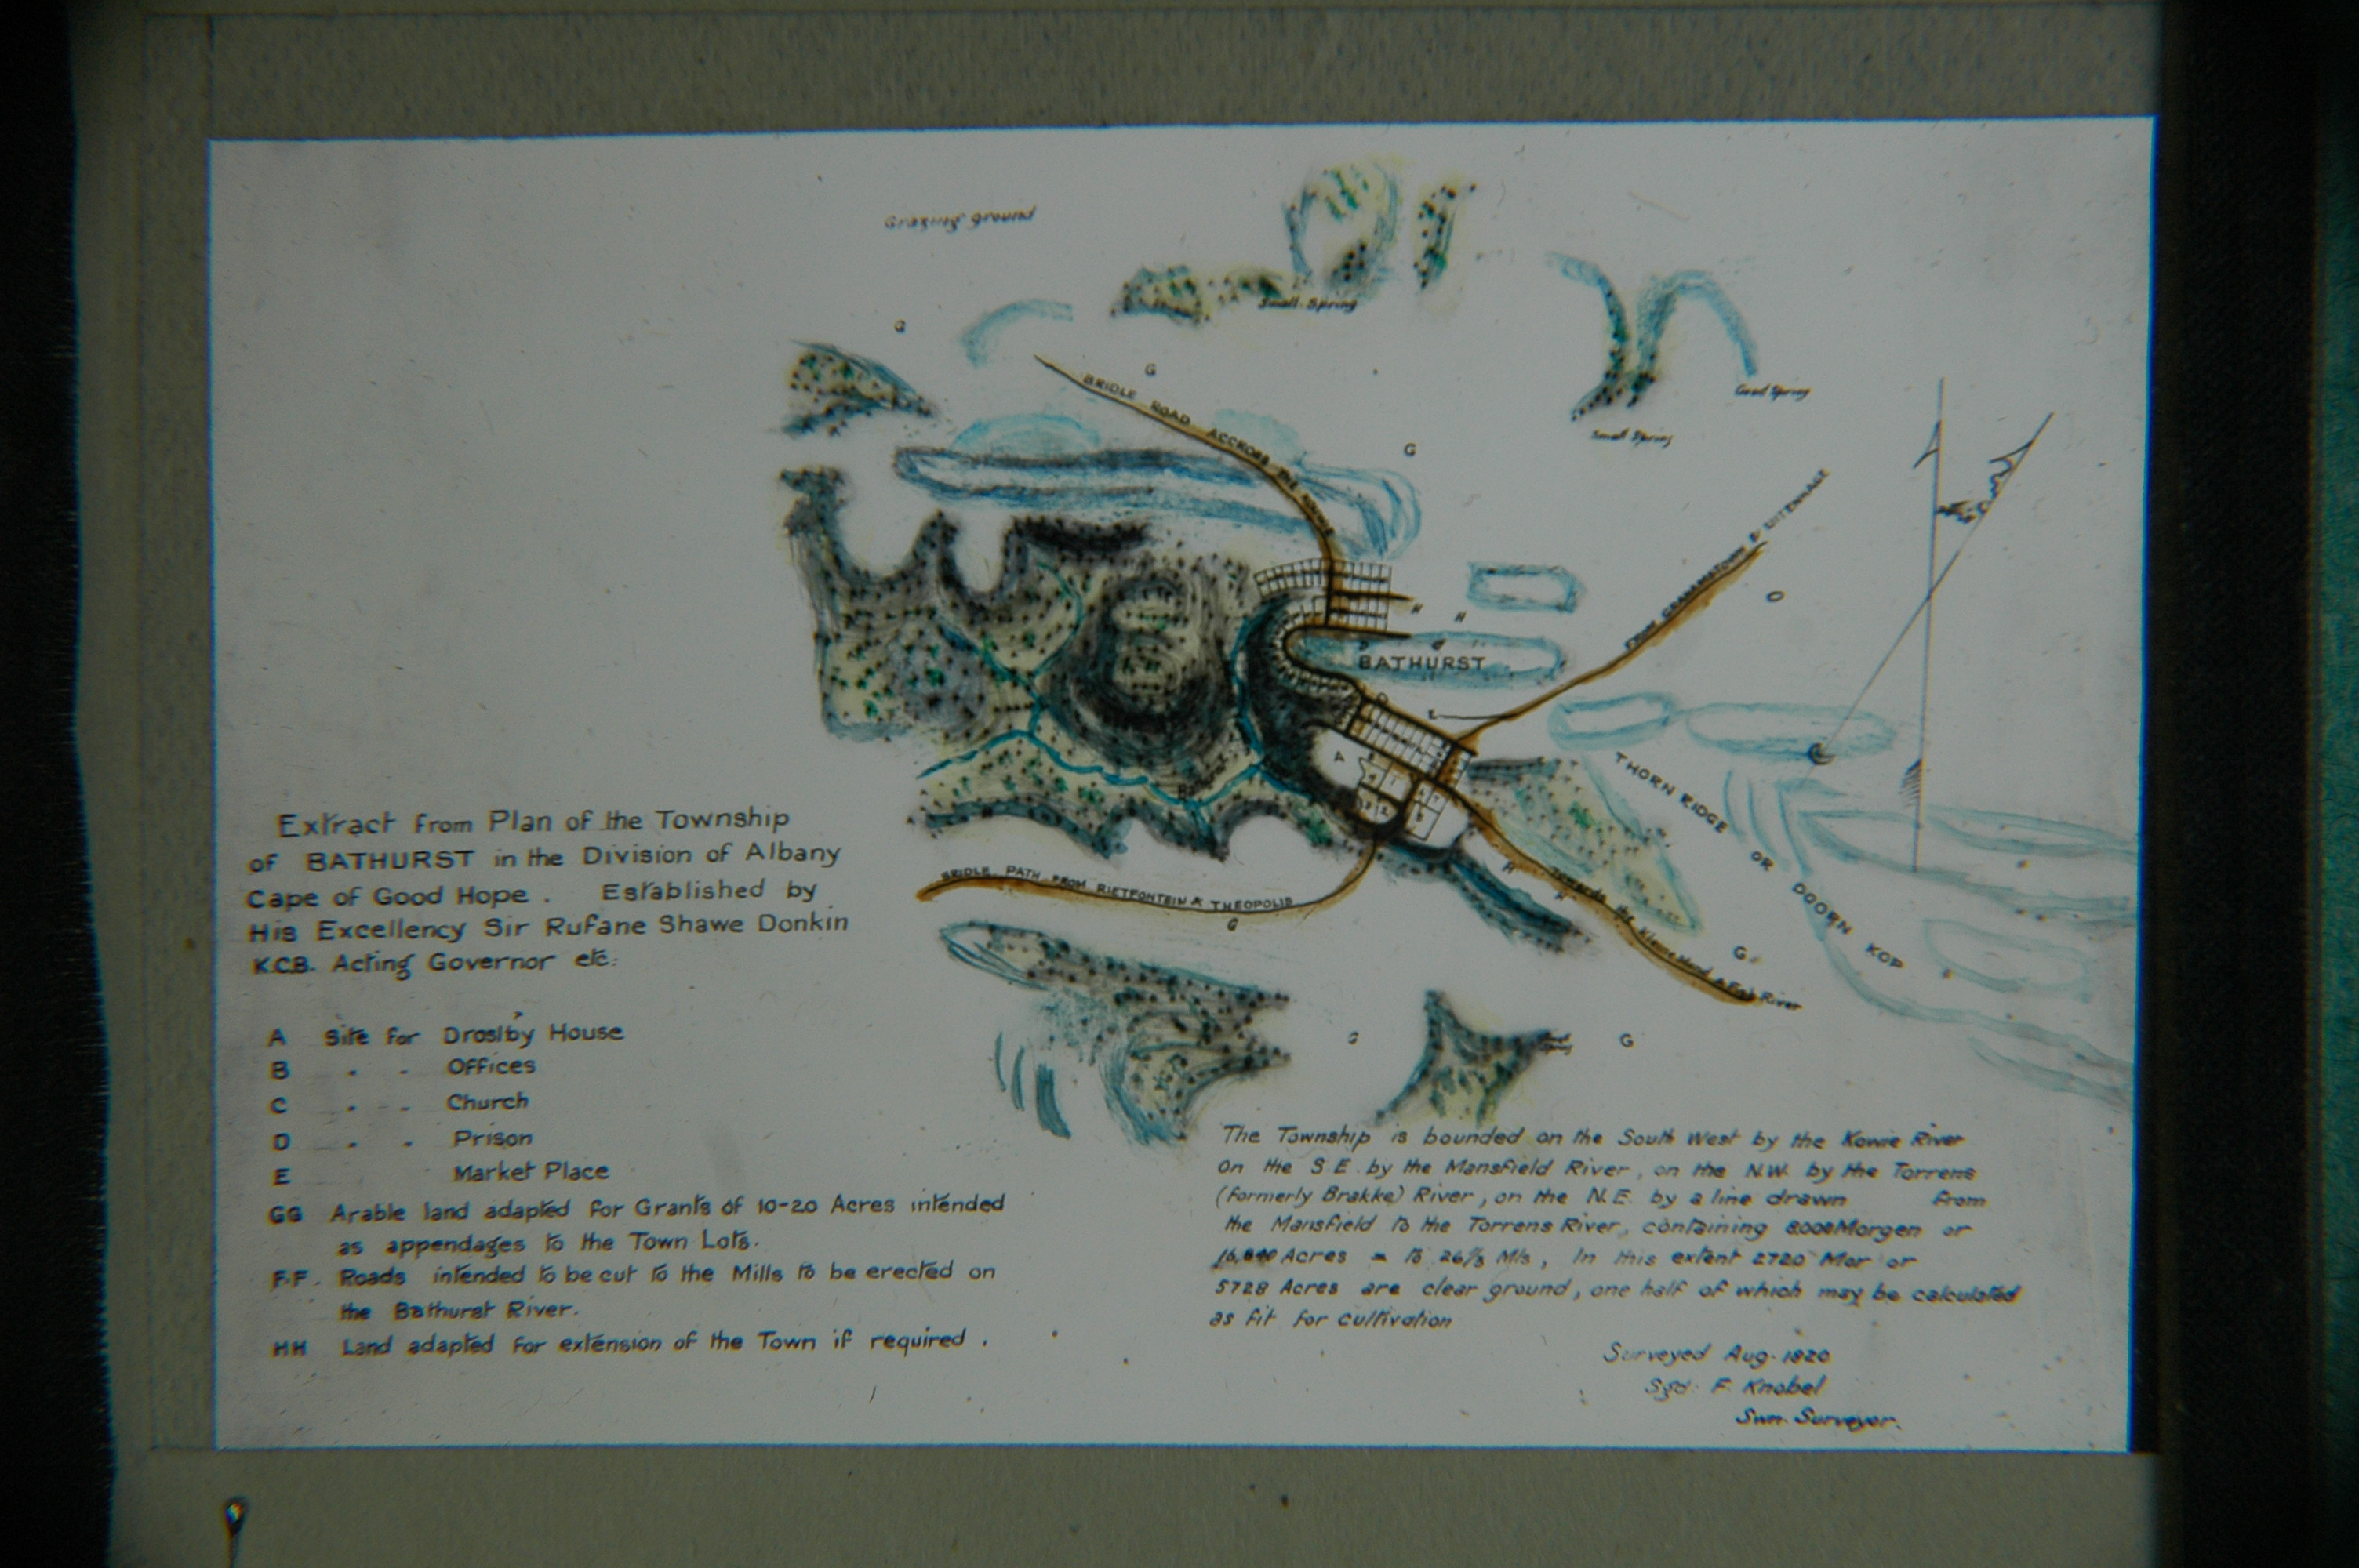 Grazing ground
Small Spring
G
G
BRIDLE ROAD ACCROSS THE KOWIE
Good Spring
G
Small Spring
FROM GRAHAMSTOWN & UITENHAGE
H
H
BATHURST
E
A
THORN RIDGE OR DOORN KOP
BRIDLE PATH FROM RIETFONTEIN & THEOPOLIS
G
H
H
Towards the Kleine Mond & Fish River
G
G
G
Extract from Plan of the Township
of BATHURST in the Division of Albany
Cape of Good Hope. Established by
His Excellency Sir Rufane Shawe Donkin
K.C.B. Acting Governor etc:
A Site for Droslby House
B . - Offices
C . - Church
D . . Prison
E Market Place
GG Arable land adapted for Grants of 10-20 Acres intended
as appendages to the Town Lots.
F.F. Roads intended to be cut to the Mills to be erected on
the Bathurst River.
HH Land adapted for extension of the Town if required .
The Township is bounded on the South West by the Kowie River
on the S.E. by the Mansfield River, on the N.W. by the Torrens
(formerly Brakke) River, on the N.E. by a line drawn from
the Mansfield to the Torrens River, containing 8000 Morgen or
Acres = to 26⅓ Mls, In this extent 2720 Mor or
5728 Acres are clear ground, one half of which may be calculated
as fit for cultivation
Surveyed Aug. 1820
Sgd. F. Knobel
Swn. Surveyor.